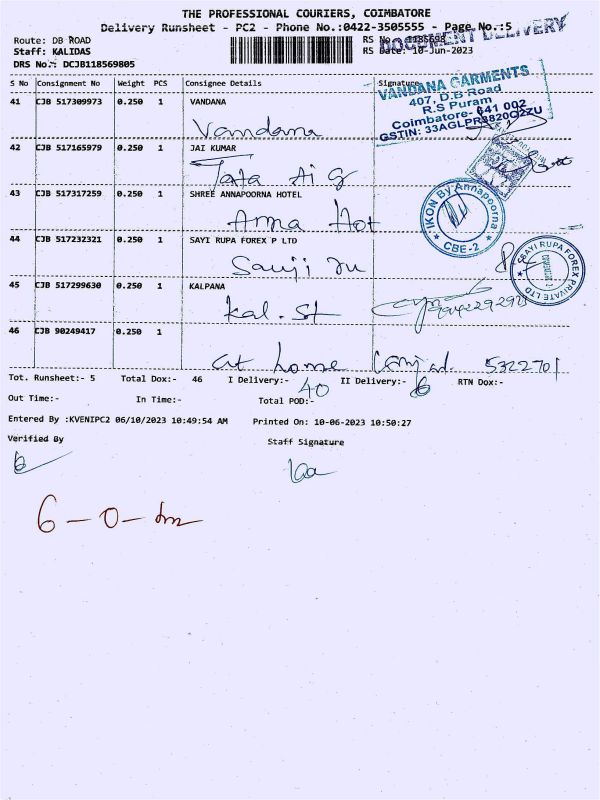 THE PROFESSIONAL COURIERS, COIMBATORE
Delivery Runsheet - PC2 - Phone No.:0422-3505555 - Page No.:5
DOCUMENT DELIVERY
Route: DB ROAD
RS No.
Staff: KALIDAS
RS Date: 10-Jun-2023
DRS No.: DCJB118569805
S No Consignment No Weight PCS Consignee Details Signature
41 CJB 517309973 0.250 1 VANDANA
Vandana
VANDANA GARMENTS
407, D.B Road
R.S Puram
Coimbatore- 641 002
GSTIN: 33AGLPR3820C2ZU
42 CJB 517165979 1 0.250 1 JAI KUMAR
Tata Ai g
43 CJB 517317259 0.250 1 SHREE ANNAPOORNA HOTEL
Anna Hot
IKON By Annapoorna
CBE-2
44 CJB 517232321 0.250 1 SAYI RUPA FOREX P LTD
SAYI RUPA FOREX PRIVATE LTD
45 CJB 517299630 0.250 1 KALPANA
kal. St
46 CJB 90249417 0.250 1
at home 5322701
Tot. Runsheet:- 5 Total Dox:- 46 I Delivery:- 40 II Delivery:- 6 RTN Dox:-
Out Time:- In Time:- Total POD:-
Entered By :KVENIPC2 06/10/2023 10:49:54 AM Printed On: 10-06-2023 10:50:27
Verified By Staff Signature
6 - 0 -